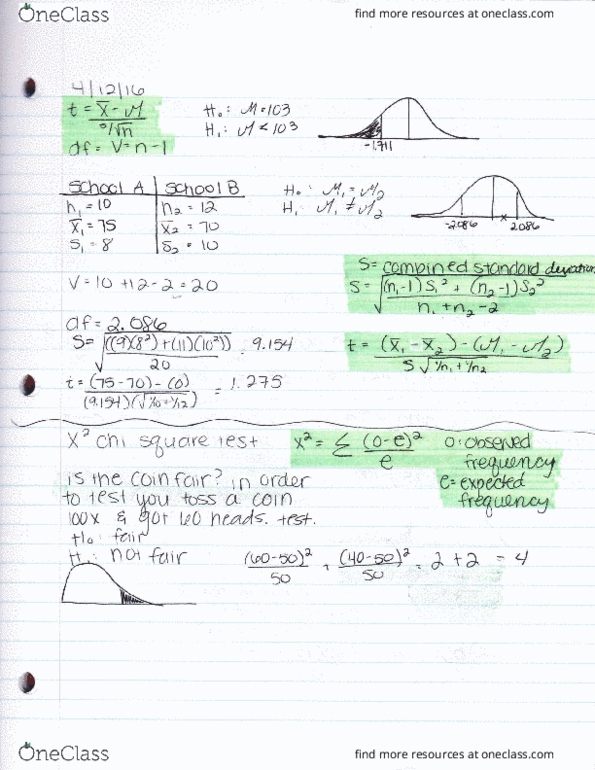 OneClass
find more resources at oneclass.com
4/12/16
t = x̄ - μ
s/√n
df = V = n - 1
H₀: μ = 103
H₁: μ < 103
-1.711
School A | School B
n₁ = 10 | n₂ = 12
x̄₁ = 75 | x̄₂ = 70
s₁ = 8 | s₂ = 10
H₀: μ₁ = μ₂
H₁ μ₁ ≠ μ₂
-2.086 x 2.086
V = 10 + 12 - 2 = 20
S = combined standard deviation
S = √((n₁-1)S₁² + (n₂-1)S₂²
n₁ + n₂ - 2
df = 2.086
S = √((9)(8²) + (11)(10²)) = 9.154
20
t = (x̄₁ - x̄₂) - (μ₁ - μ₂)
S √1/n₁ + 1/n₂
t = (75 - 70) - (0) = 1.275
(9.154)(√1/10 + 1/12)
X² chi square test
X² = Σ (o-e)²
e
o: observed
frequency
e = expected
frequency
is the coin fair? in order
to test you toss a coin
100x & got 60 heads. test.
H₀: fair
H₁: not fair
(60-50)² + (40-50)² = 2 + 2 = 4
50 50
OneClass
find more resources at oneclass.com